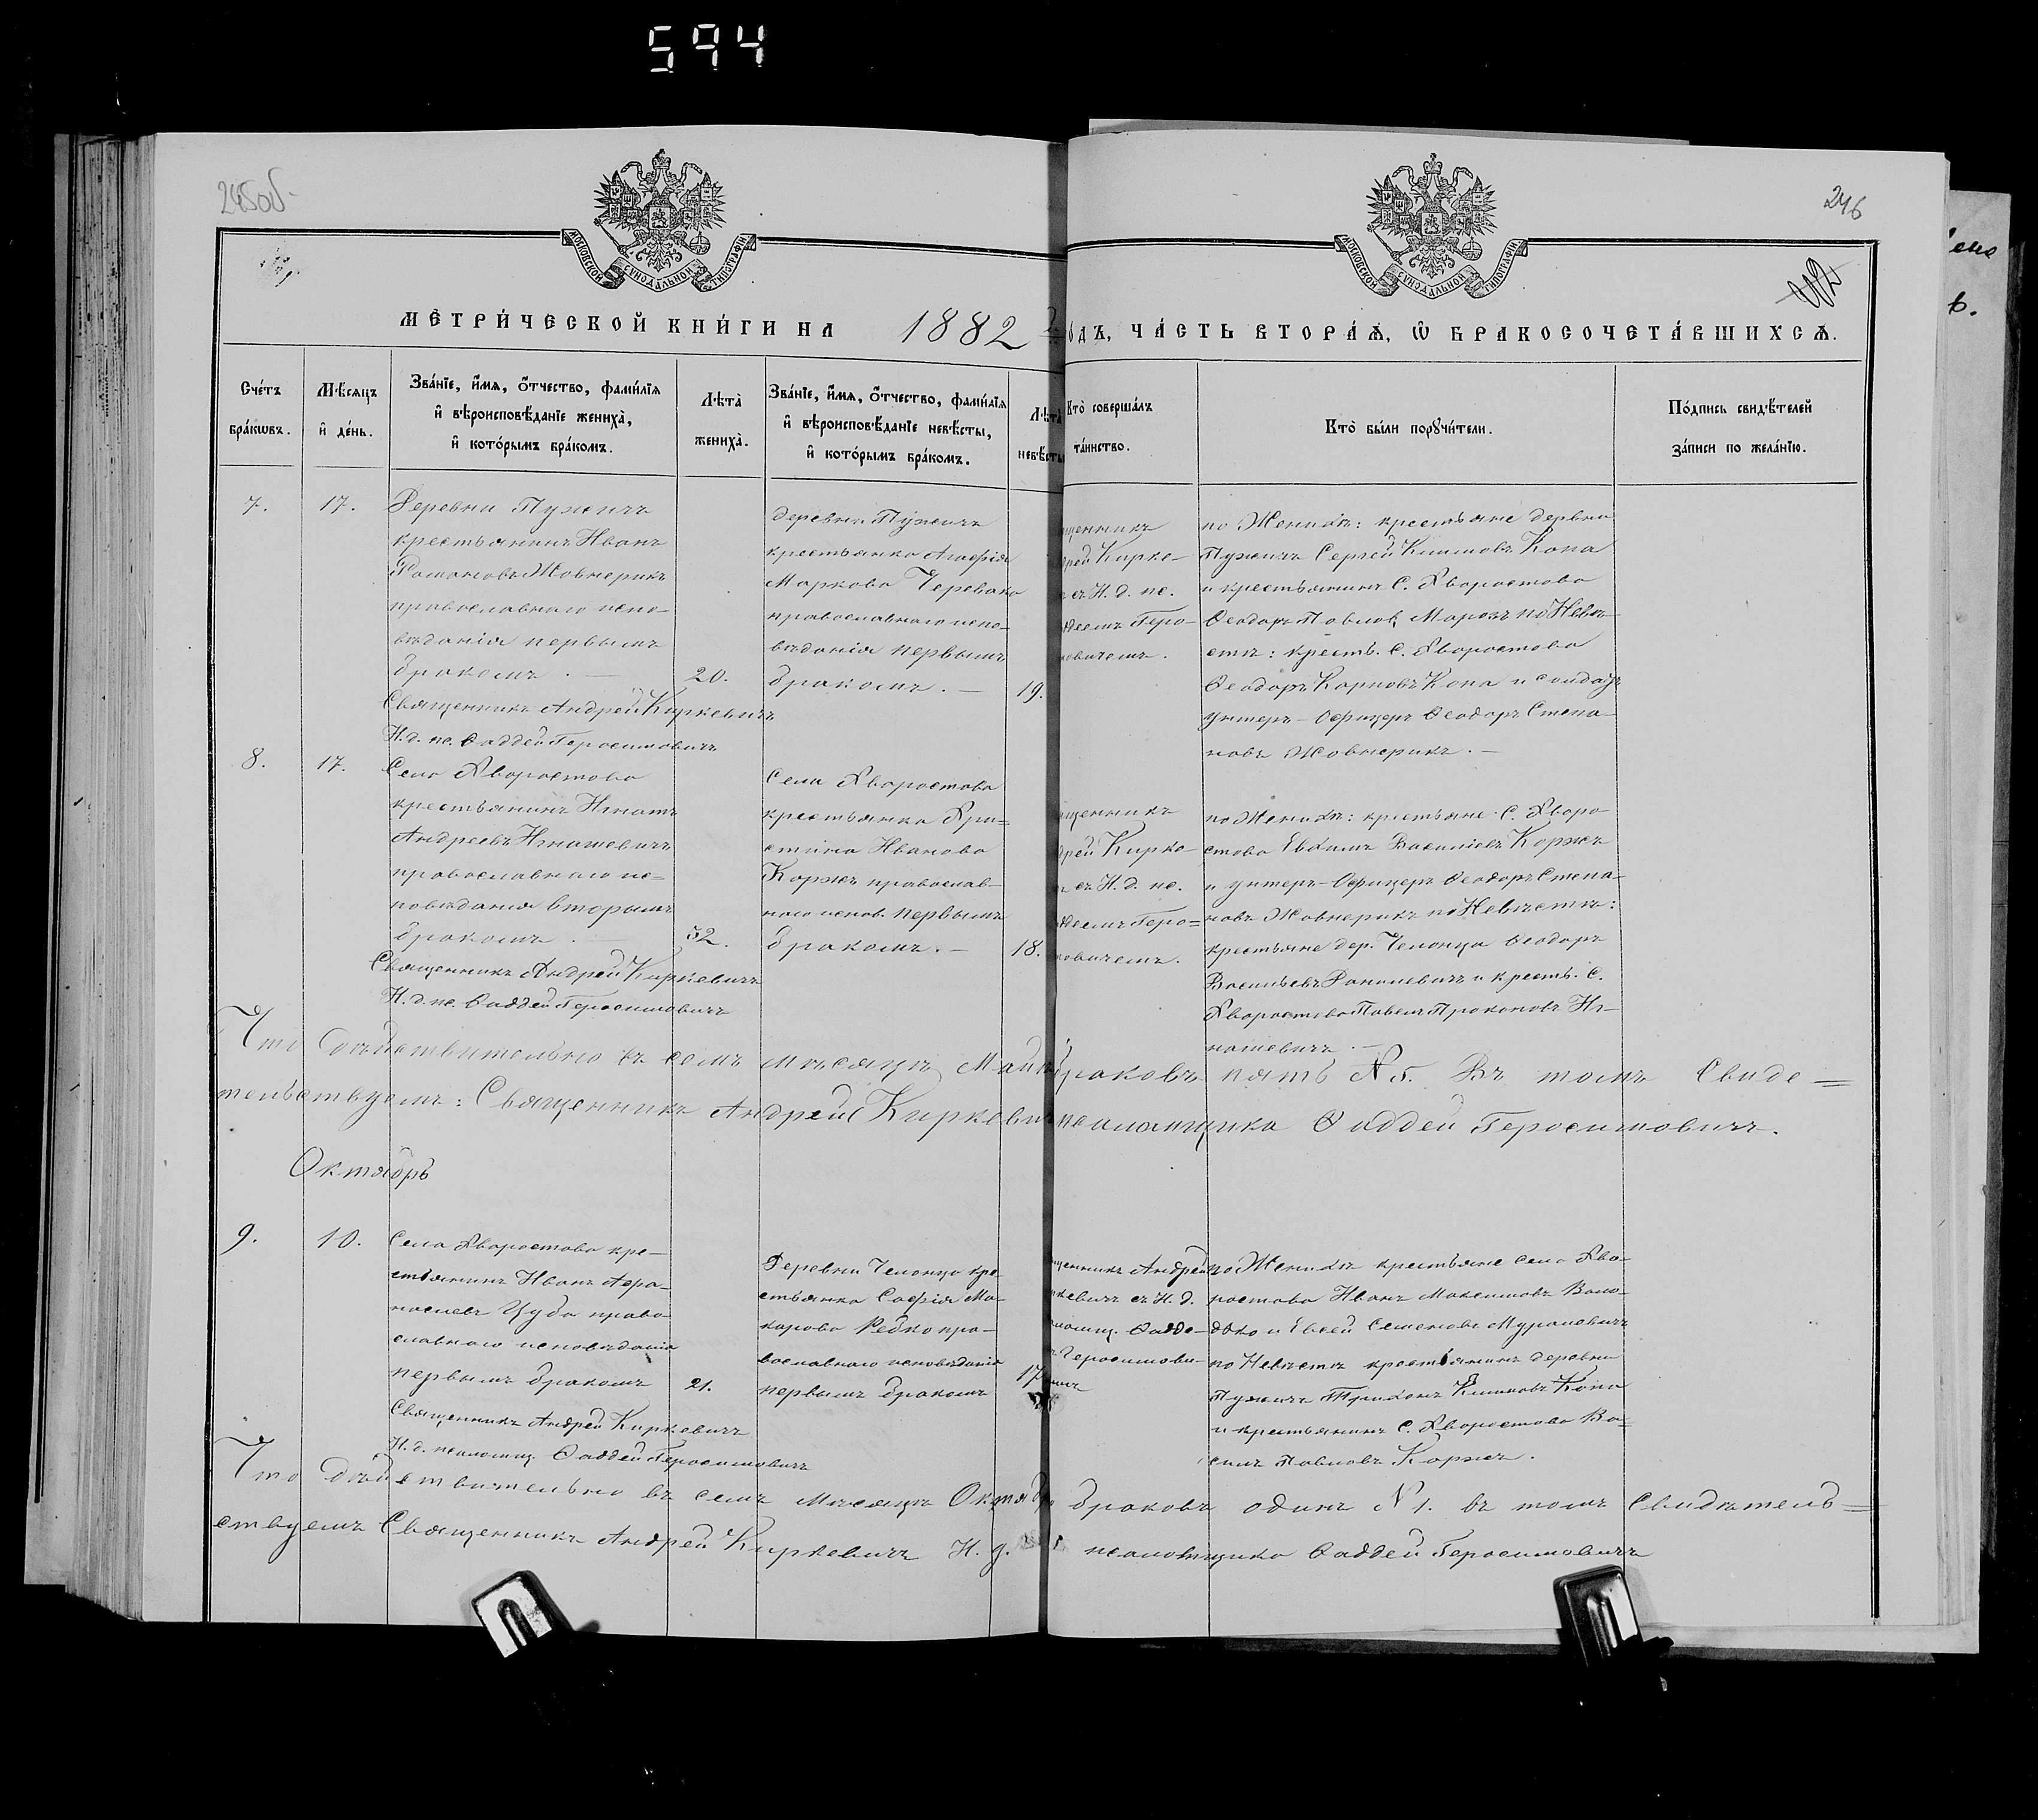 594
245об
246
МОСКОВСКОЙ СУНОДАЛЬНОЙ ТИПОГРАФІИ
МОСКОВСКОЙ СУНОДАЛЬНОЙ ТИПОГРАФІИ
МЕТРИ́ЧЕСКОЙ КНИ́ГИ НА 1882 г҃одъ, ЧА́СТЬ ВТОРА́Ѧ, Ѡ҆ БРАКОСОЧЕТА́ВШИХСѦ.
Сче́тъ бра́кѡвъ.
Мѣ́сяцъ и҆ де́нь.
Зва́нїе, и҆́мѧ, ѻ҆́тчество, фами́лїѧ и҆ вѣроисповѣ́данїе жениха̀, и҆ кото́рымъ бра́комъ.
Лѣта̀ жениха̀.
Зва́нїе, и҆́мѧ, ѻ҆́тчество, фами́лїѧ и҆ вѣроисповѣ́данїе невѣ́сты, и҆ кото́рымъ бра́комъ.
Лѣта̀ невѣ́сты
Кто̀ соверша́лъ та́инство.
Кто̀ бы́ли порꙋчи́тели.
По́дпись свидѣ́телей за́писи по жела́нїю.
7.
17.
Деревни Пужичъ
крестьянинъ Иванъ
Романовъ Жовнерикъ
православнаго испо-
вѣданія первымъ
бракомъ. —
20.
Священникъ Андрей Киркевичъ
И. д. пс. Ѳаддей Геросимовичъ
деревни Пужичъ
крестьянка Агафія
Маркова Черевако
православнаго испо-
вѣданія первымъ
бракомъ. —
19.
щенникъ
дрей Кирке-
съ И. д. пс.
деемъ Геро-
мовичемъ.
по Женихѣ: крестьяне дервни
Пужичъ Сергей Климовъ Копа
и крестьянинъ С. Хворостова
Ѳеодоръ Павловъ Марозъ по Невѣ-
стѣ: крестъ. С. Хворостова
Ѳеодоръ Карповъ Копа и солдатъ
унтеръ-Офицеръ Ѳеодоръ Степа-
новъ Жовнерикъ. —
8.
17.
Села Хворостова
крестьянинъ Игнатъ
Андреевъ Игнатевичъ
православнаго ис=
повѣданія вторымъ
бракомъ. —
52.
Священникъ Андрей Киркевичъ
И. д. пс. Ѳаддей Геросимовичъ
Села Хворостова
крестьянка Хри=
стина Иванова
Коржъ православ-
наго испов. первымъ
бракомъ. —
18.
щенникъ
дрей Кирке-
съ И. д. пс.
деемъ Геро=
мовичемъ.
по Женихѣ: крестьяне С. Хворо
стова Евѳимъ Василіевъ Коржъ
и унтеръ-Офицеръ Ѳеодоръ Степа-
новъ Жовнерикъ по Невѣстѣ:
крестьяне дер. Челонца Ѳеодоръ
Васильевъ и крестъ. С.
Хворостова Павелъ Прокоповъ Иг-
натевичъ. —
Что дѣйствительно въ семъ мѣсяцѣ Маѣ браковъ пять № 5. Въ томъ Свиде=
тельствуемъ: Священникъ Андрей Киркевичъ псаломщика Ѳаддей Геросимовичъ.
Октябрь
9.
10.
Села Хворостова кре-
стьянинъ Иванъ Аѳа-
насіевъ Цуба право-
славнаго исповѣданія
первымъ бракомъ
21.
Священникъ Андрей Киркевичъ
И. д. псаломщ. Ѳаддей Геросимовичъ
Деревни Челонца кре-
стьянка Софія Ма-
карова Редко пра-
вославнаго исповѣданія
первымъ бракомъ
17
щенникъ Андрей
ркевичъ съ И. д.
аломщ. Ѳадде-
Геросимови-
по Женихѣ крестьяне села Хво-
ростова Иванъ Максимовъ Воло-
дько и Евсей Семеновъ Мурановичъ
по Невѣстѣ крестьянинъ деревни
Пужичъ Трихонъ Климовъ Копа
и крестьянинъ С. Хворостова Ва=
силъ Павловъ Коржъ.
Что дѣйствительно въ семъ мѣсяцѣ Октябрѣ браковъ одинъ № 1. въ томъ Свидѣтель=
ствуемъ Священникъ Андрей Киркевичъ И. д. псаломщика Ѳаддей Геросимовичъ